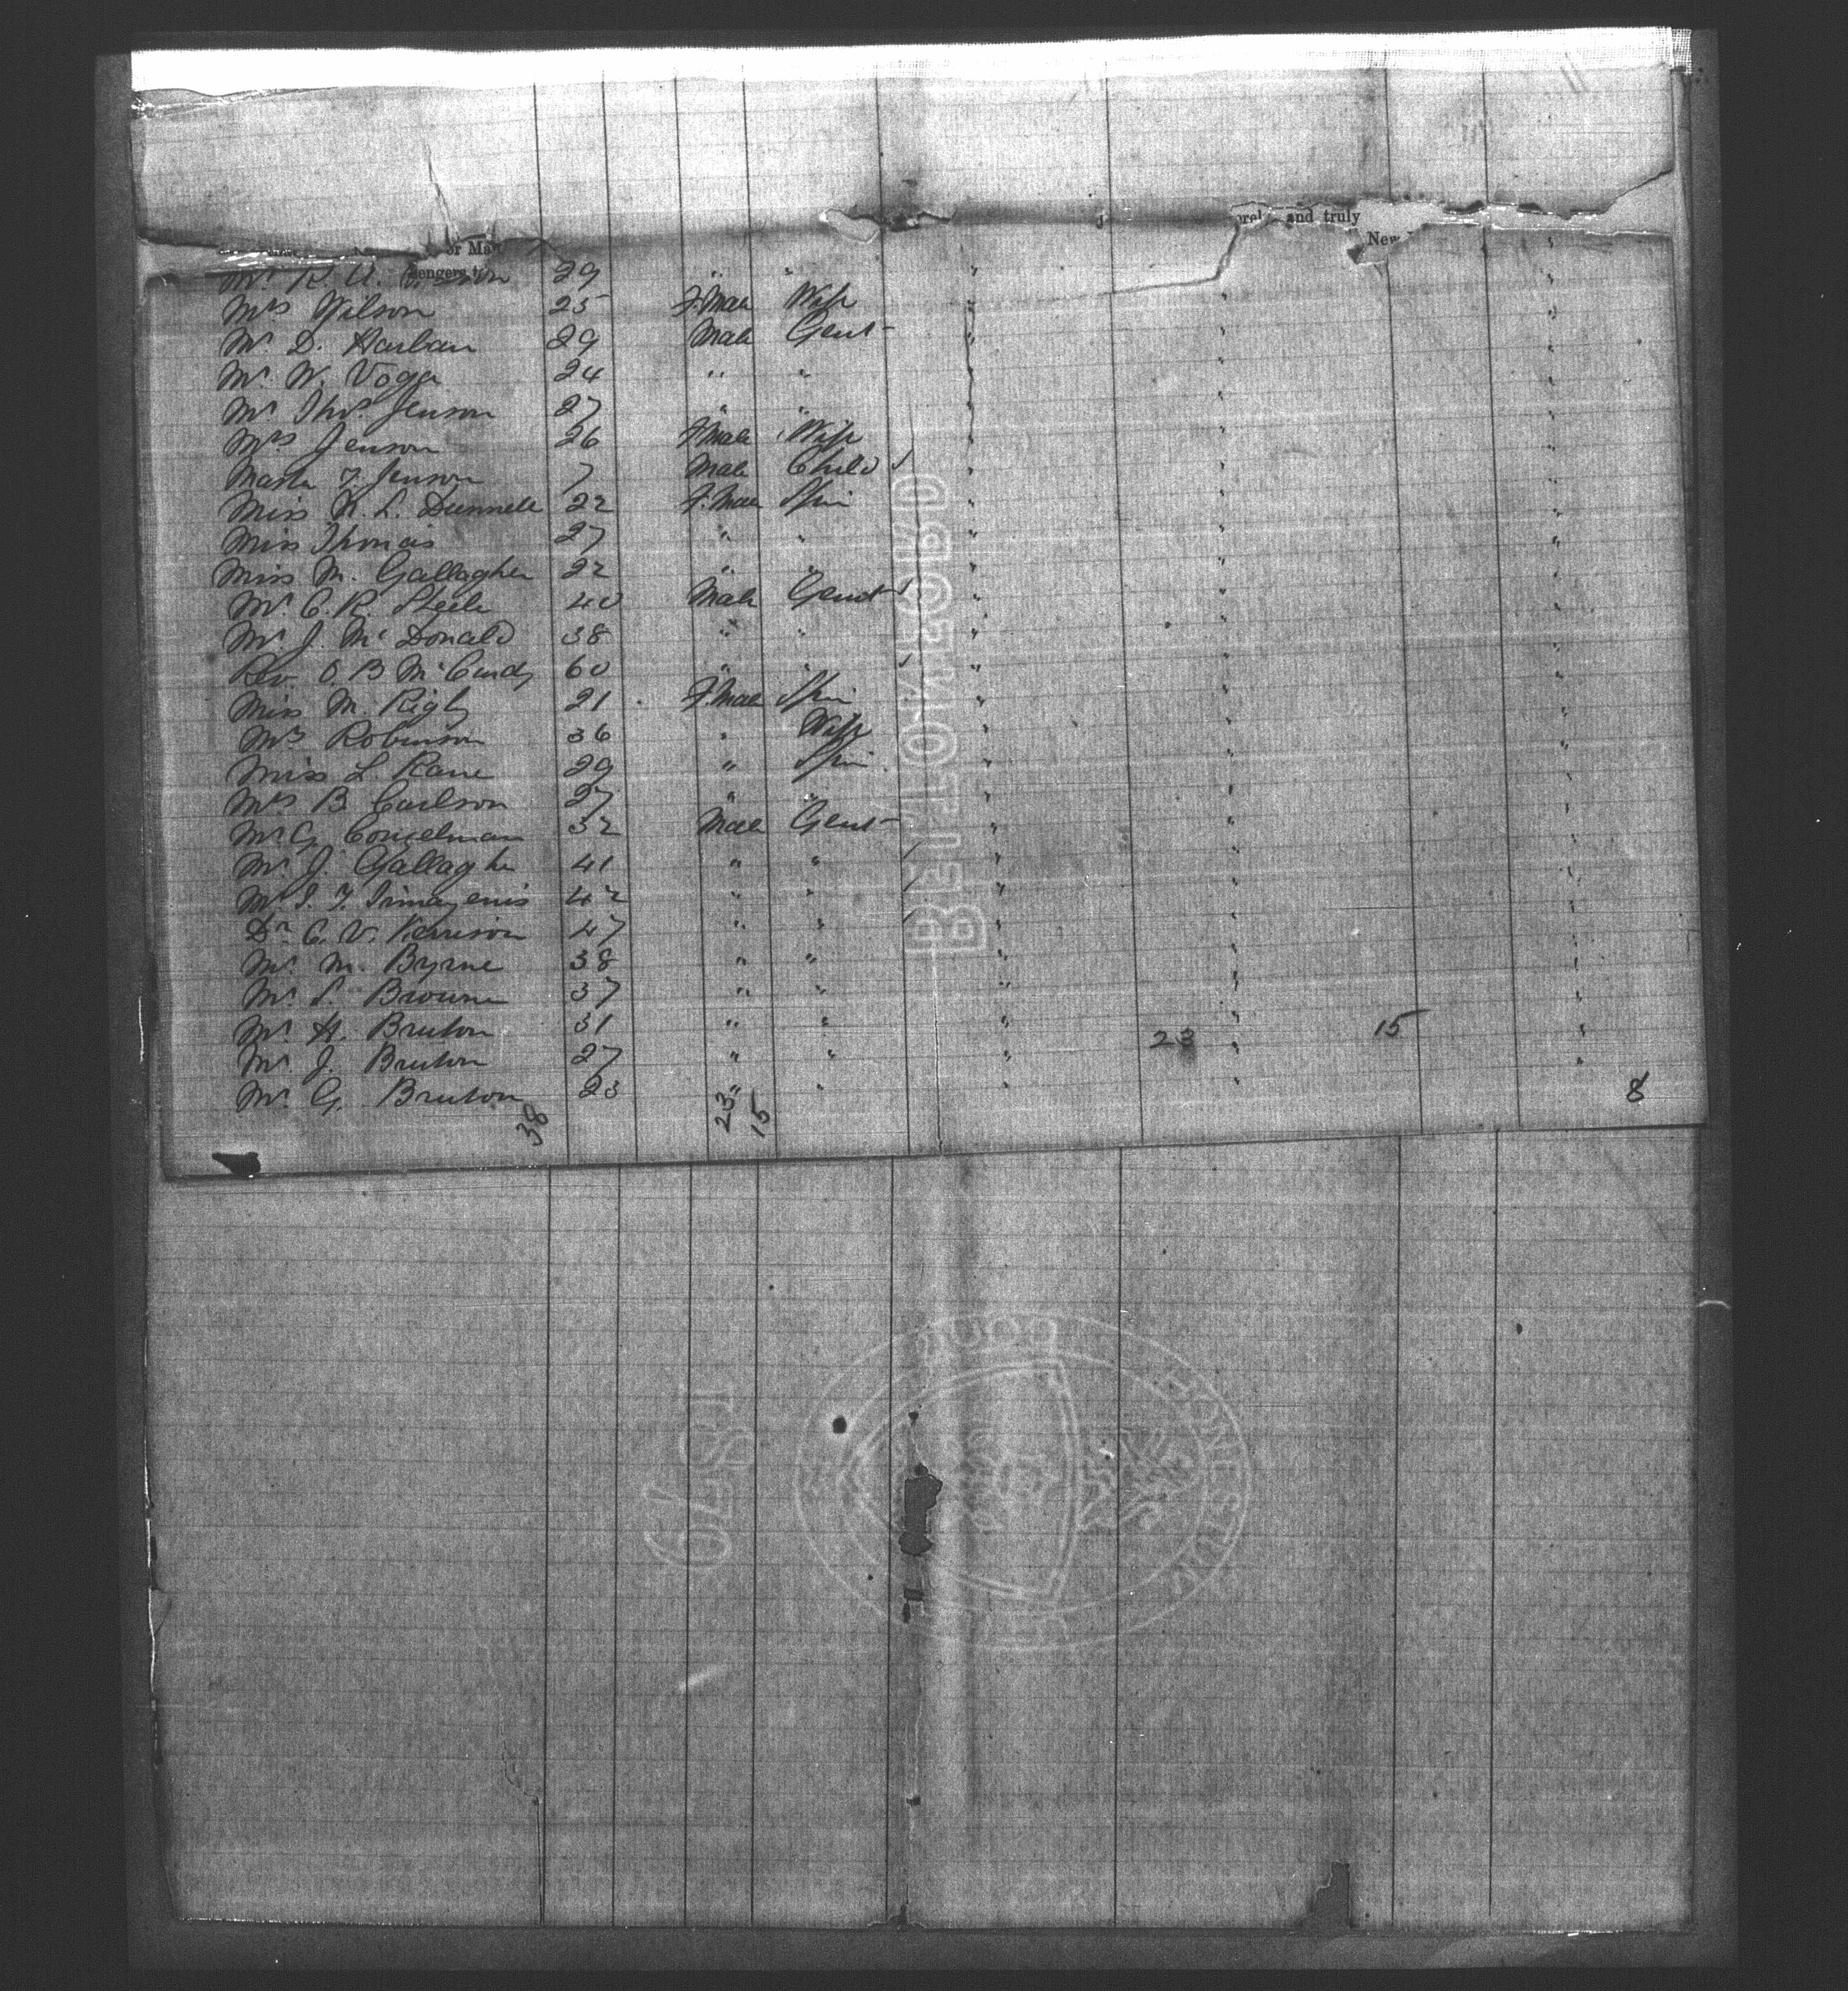 and truly
or Mas
New
engers
Mr R. A. 29 " " "
Mrs Wilson 25 F.Male Wife " " "
Mr D. Harlan 29 Male Gent " " "
Mr W. Vogge 24 " " " " "
Mr Thos. Jenson 27 " " " " "
Mrs Jenson 26 F.Male Wife " " "
Master F. Jenson 7 Male Child " " "
Miss K. L. Dunnell 22 F.Male Spin " " "
Miss Thomas 27 " " " " "
Miss M. Gallagher 22 " " " " "
Mr C. R. Steele 40 Male Gent " " "
Mr J. McDonald 38 " " " " "
Rev O. B McCurdy 60 " " " " "
Miss M. Rigby 21 F.Male Spin " " "
Mrs Robinson 36 " Wife " " "
Miss L. Kane 29 " Spin " " "
Mrs B. Carlson 27 " " " " "
Mr G. Conzelman 32 Male Gent " " "
Mr J. Gallagher 41 " " " " "
Mr 42 " " " " "
Dr C. V. Kerrison 47 " " " " "
Mr M. Byrne 38 " " " " "
Mr S. Browne 37 " " " " "
Mr H. Bruton 31 " " " 23 " 15 "
Mr J. Bruton 27 " " " " "
Mr G. Bruton 23 " " " " 8
38 23 15
BRITON
1879